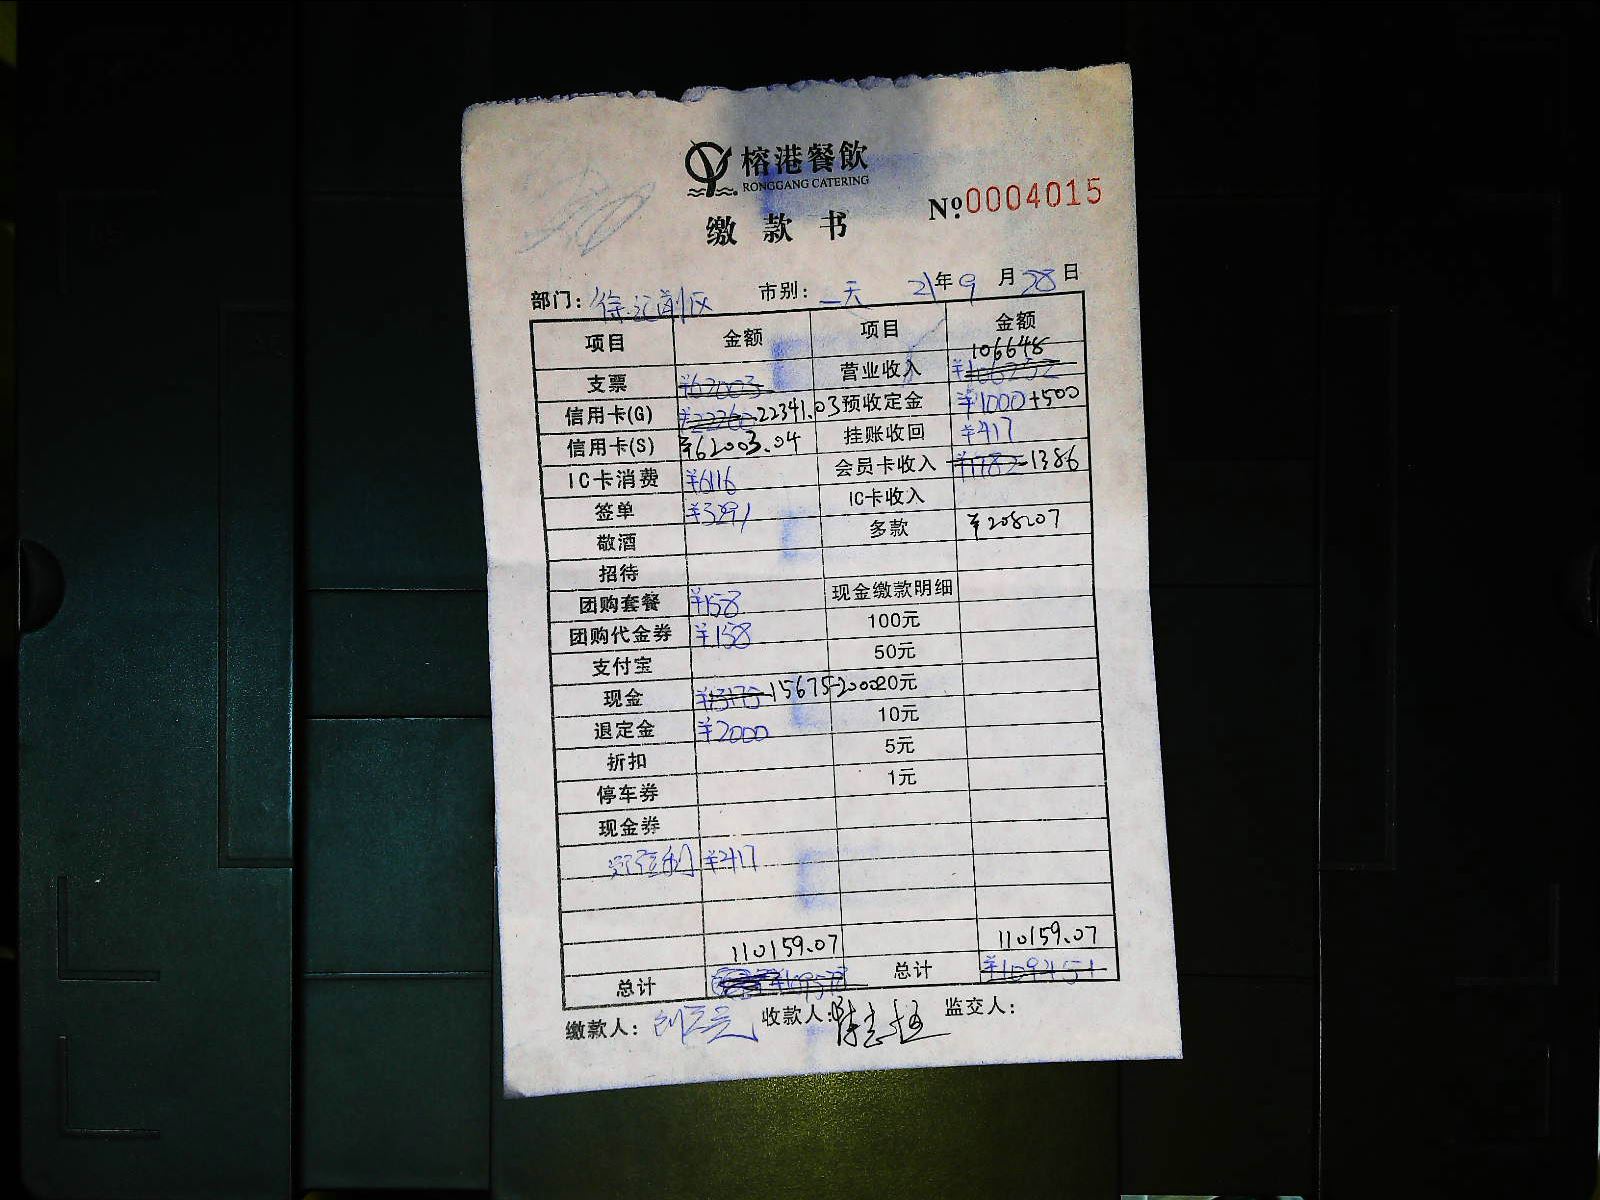 榕港餐飲
RONGGANG CATERING
缴款书 Nº0004015
部门: 市别: 一天 21年9月28日
项目 金额 项目 金额
支票 ¥62003 营业收入 106648
信用卡(G) ¥22260 22341.03 预收定金 ¥1000+500
信用卡(S) ¥62003.04 挂账收回 ¥417
IC卡消费 ¥6116 会员卡收入 ¥1782 1386
签单 ¥3291 IC卡收入
敬酒 多款 ¥208.07
招待
团购套餐 ¥158 现金缴款明细
团购代金券 ¥158 100元
支付宝 50元
现金 ¥13175 15675-2000 20元
退定金 ¥2000 10元
折扣 5元
停车券 1元
现金券
¥417
110159.07 110159.07
总计 总计 ¥109451
缴款人: 收款人: 监交人: